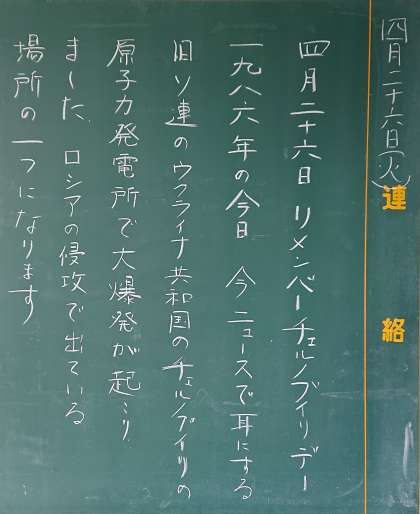 四月二十六日(火)
連絡
四月二十六日 リメンバーチェルノブイリデー
一九八六年の今日 今ニュースで耳にする
旧ソ連のウクライナ共和国のチェルノブイリの
原子力発電所で大爆発が起こり
ました。ロシアの侵攻で出ている
場所の一つになります